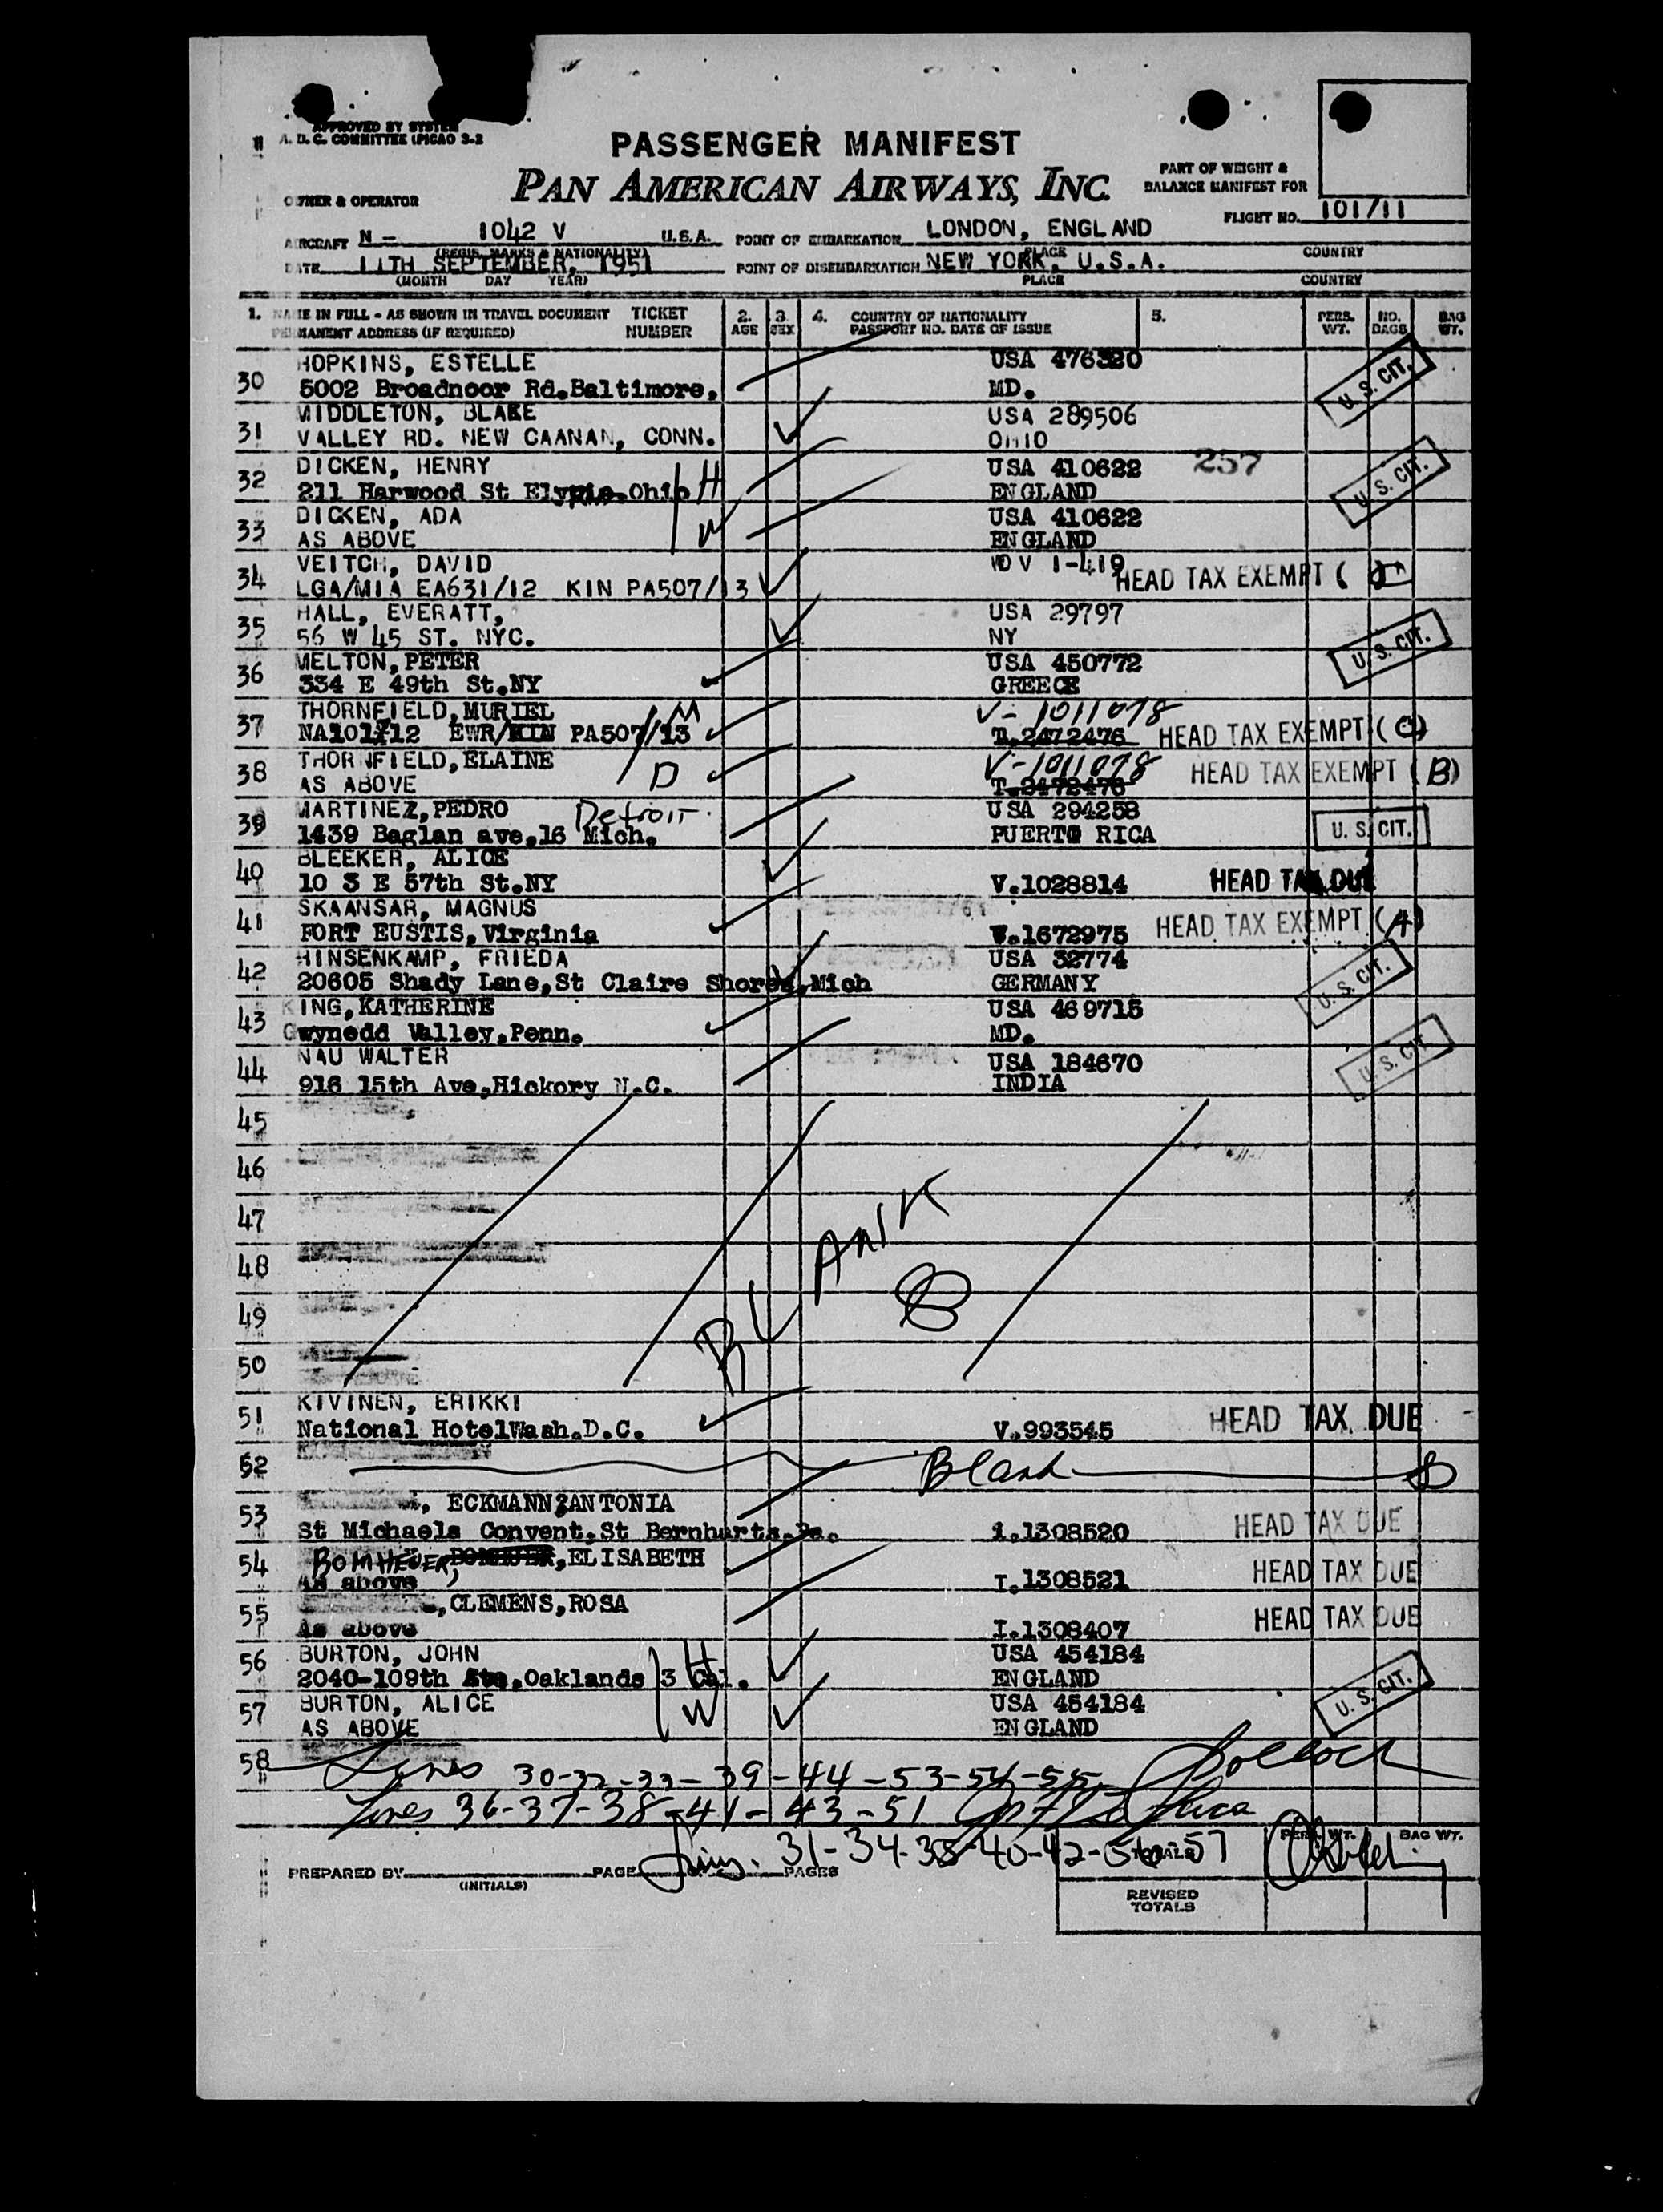 APPROVED BY SYSTEM
A. D. C. COMMITTEE (PICAO 3-2
PASSENGER MANIFEST
PAN AMERICAN AIRWAYS, INC.
PART OF WEIGHT &
BALANCE MANIFEST FOR
OWNER & OPERATOR
FLIGHT NO. 101/11
AIRCRAFT N- 1042 V U.S.A. POINT OF EMBARKATION LONDON, ENGLAND
(REGIS. MARKS & NATIONALITY) PLACE COUNTRY
DATE 11TH SEPTEMBER, 1951 POINT OF DISEMBARKATION NEW YORK, U.S.A.
(MONTH DAY YEAR) PLACE COUNTRY
1. NAME IN FULL - AS SHOWN IN TRAVEL DOCUMENT TICKET 2. 3. 4. COUNTRY OF NATIONALITY 5. PERS. NO. BAG
PERMANENT ADDRESS (IF REQUIRED) NUMBER AGE SEX PASSPORT NO. DATE OF ISSUE WT. BAGS WT.
HOPKINS, ESTELLE USA 476320
30 5002 Broadnoor Rd.Baltimore, MD. U. S. CIT.
MIDDLETON, BLAKE USA 289506
31 VALLEY RD. NEW CAANAN, CONN. OHIO
DICKEN, HENRY H USA 410622 257
32 211 Harwood St Elyria Ohio ENGLAND U. S. CIT.
DICKEN, ADA W USA 410622
33 AS ABOVE ENGLAND
VEITCH, DAVID V 1-419
34 LGA/MIA EA631/12 KIN PA507/13 HEAD TAX EXEMPT (
HALL, EVERATT, USA 29797
35 56 W 45 ST. NYC. NY U. S. CIT.
MELTON, PETER USA 450772
36 334 E 49th St.NY GREECE
THORNFIELD, MURIEL M V-1011078
37 NA101/12 EWR/KIN PA507/13 T.2472476 HEAD TAX EXEMPT (C)
THORNFIELD, ELAINE D V-1011078
38 AS ABOVE T.2472476 HEAD TAX EXEMPT (B)
MARTINEZ, PEDRO Detroit. USA 294258
39 1439 Baglan ave,16 Mich. PUERTO RICA U. S. CIT.
BLEEKER, ALICE
40 10 3 E 57th St.NY V.1028814 HEAD TAX DUE
SKAANSAR, MAGNUS
41 FORT EUSTIS, Virginia V.1672975 HEAD TAX EXEMPT (A)
HINSENKAMP, FRIEDA USA 32774
42 20605 Shady Lane,St Claire Shores,Mich GERMANY U. S. CIT.
KING, KATHERINE USA 469715
43 Gwynedd Valley,Penn. MD.
NAU WALTER USA 184670
44 916 15th Ave,Hickory N.C. INDIA U. S. CIT.
45
46
47
48
49
50
BLANK
KIVINEN, ERIKKI
51 National HotelWash.D.C. V.993545 HEAD TAX DUE
52 Blank
, ECKMANN,ANTONIA
53 St Michaels Convent,St Bernharts.Pa. i.1308520 HEAD TAX DUE
54 BOMHEUER, ,ELISABETH
As above I.1308521 HEAD TAX DUE
,CLEMENS,ROSA
55 As above I.1308407 HEAD TAX DUE
BURTON, JOHN H USA 454184
56 2040-109th Ave,Oaklands 3 Cal. ENGLAND
BURTON, ALICE W USA 454184
57 AS ABOVE ENGLAND U. S. CIT.
58 Lines 30-32-33-39-44-53-54-55
Lines 36-37-38-41-43-51
Lines. 31-34-35-40-42-56-57
PREPARED BY PAGE OF PAGES TOTALS PERS. WT. BAG WT.
(INITIALS)
REVISED
TOTALS